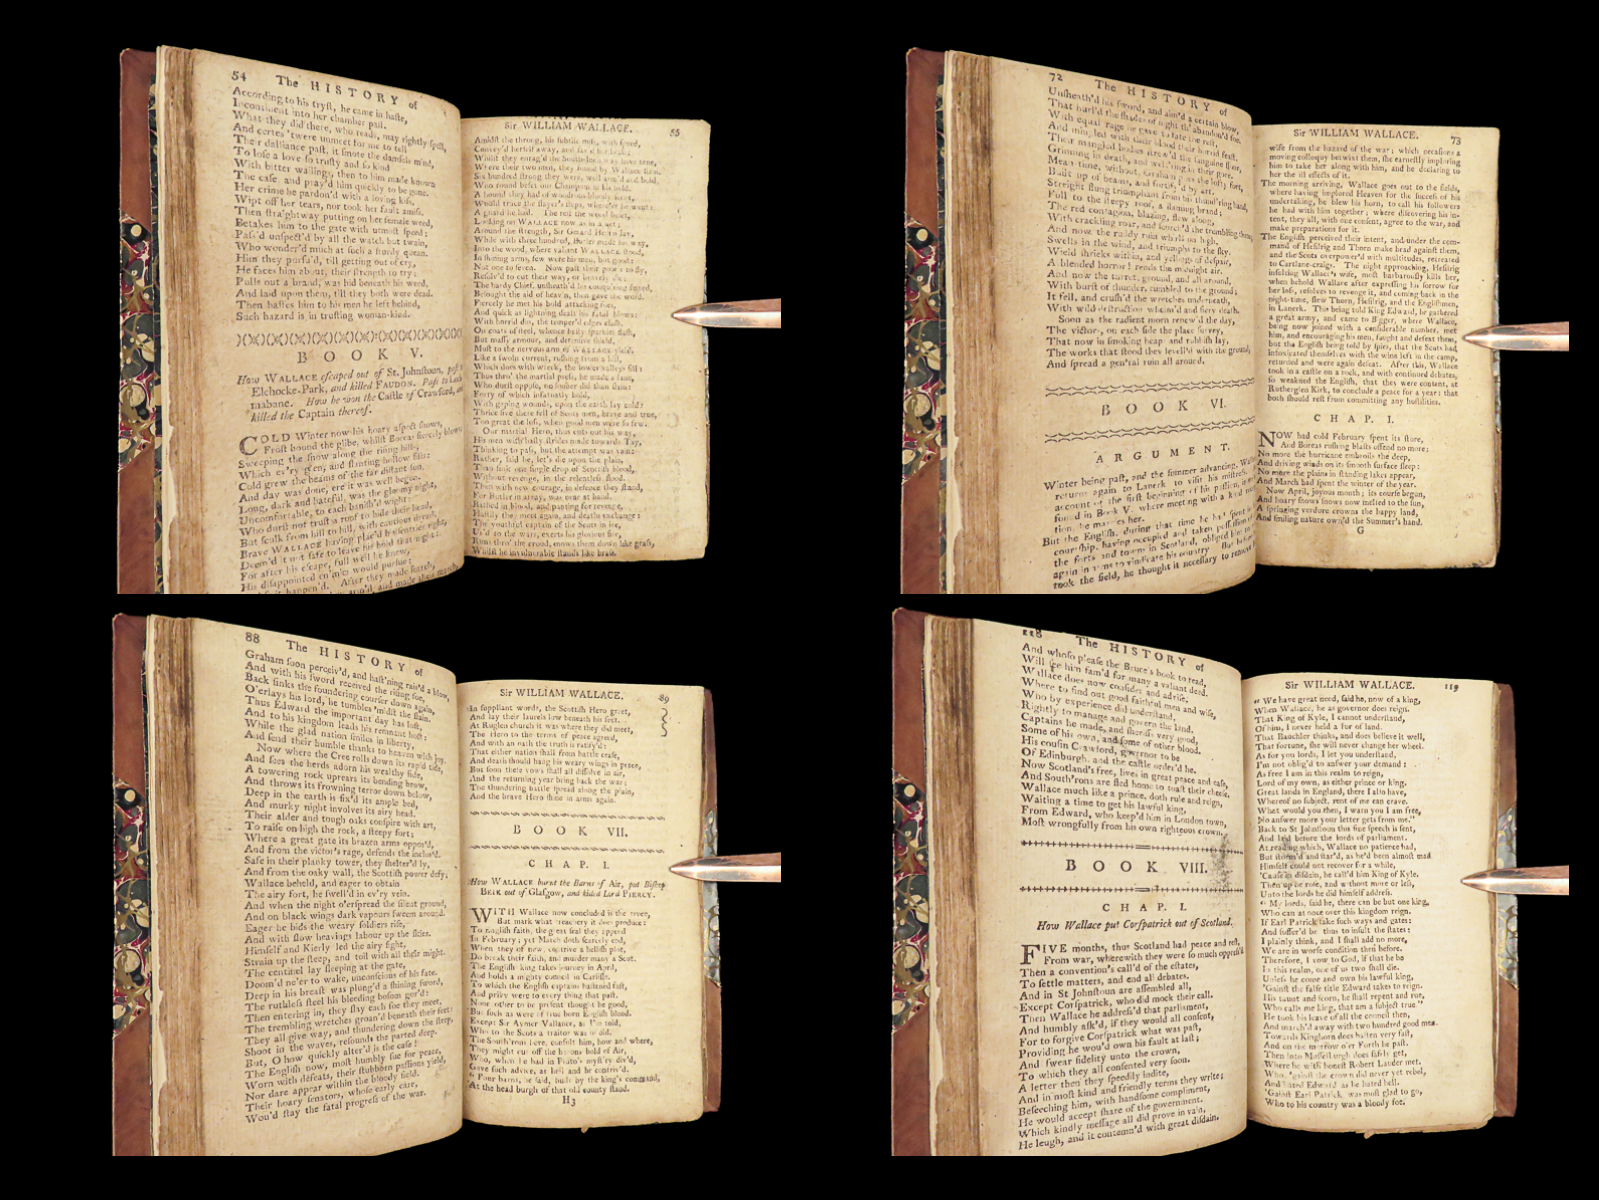 54 The HISTORY of
According to his tryst, he came in haste,
Incontinent into her chamber past.
What they did there, who reads, may rightly spell,
And certes 'twere unmeet for me to tell
Their dalliance past, it smote the damsels mind,
To lose a love so trusty and so kind
With bitter wailings, then to him made known
The case, and pray'd him quickly to be gone.
Her crime he pardon'd with a loving kiss,
Wipt off her tears, nor took her fault amiss.
Then straightway putting on her female weed,
Betakes him to the gate with utmost speed;
Pass'd unspect'd by all the watch but twain,
Who wonder'd much at such a sturdy quean.
Him they pursu'd, till getting out of cry,
He faces him about, their strength to try:
Pulls out a brand, was hid beneath his weed,
And laid upon them, till they both were dead.
Then hastes him to his men he left behind,
Such hazard is in trusting woman-kind.
BOOK V.
How WALLACE escaped out of St. Johnstoun, past
Elchocke-Park, and killed FAUDON. Past to
mabane. How he won the Castle of Crawford, and
killed the Captain thereof.
COLD Winter now his hoary aspect shows,
Frost bound the glibe, whilst Boreas fiercely blows
Sweeping the snow along the rising hills,
Which ev'ry glen, and slanting hollow fills:
Cold grew the beams of the far distant sun,
And day was done, ere it was well begun.
Long, dark and hateful, was the gloomy night,
Uncomfortable, to each banish'd wight:
Who durst not trust a roof to hide their head,
But sculk from hill to hill, with cautious dread.
Brave WALLACE having plac'd his centries right,
Deem'd it not safe to leave his hold that night:
For after his escape, full well he knew,
His disappointed en'mies would pursue:
Sir WILLIAM WALLACE. 55
Amidst the throng, his subtile miss, with speed,
Around the strength, Sir Gerard Heron lay,
While with three hundred,
Into the wood, where valiant WALLACE stood,
In shining arms, few were his men, but good:
Not one to seven. Now past their pow'r to fly,
Resolv'd to cut their way, or bravely die:
The hardy Chief, unsheath'd his conqu'ring sword,
Besought the aid of heaven, then gave the word.
Fiercely he met his bold attacking foes,
And quick as lightning deals his fatal blows:
With horrid din, the temper'd edges clash,
On coats of steel, whence hasty sparkles flash,
But massy armour, and defensive shield,
Must to the nervous arm of WALLACE yield.
Like a swoln current, rushing from a hill,
Which does with wreck, the lower valleys fill:
Thus thro' the martial press, he made a lane,
Who durst oppose, no sooner did than slain:
Forty of which insatuately bold,
With gaping wounds, upon the earth lay cold:
Thrice five there fell of Scots men, brave and true,
Too great the loss, when good men were so few.
Our martial Hero, thus cuts out his way,
His men with hasty strides made towards Tay,
Thinking to pass, but the attempt was vain:
Rather, said he, let's die upon the plain,
Than sink one single drop of Scottish blood,
Without revenge, in the relentless flood.
Then with new courage, in defence they stand,
For Butler in array, was near at hand.
Bathed in blood, and panting for revenge,
Hastily they meet again, and death exchange:
The youthful captain of the Scots in ire,
Thro' the crowd, mows them down like grass,
Whilst he invulnerable stands like brass.
72 The HISTORY of
Unsheath'd his sword, and aim'd a certain blow,
That hurl'd the shades of night th' abandon'd foe.
With equal rage he gave to fate the rest,
And mingled with their blood their horrid feast.
Their mangled bodies strew'd the sanguine floor,
Grinning in death, and welt'ring in their gore.
Mean time, without, Graham gains the lofty fort,
Built up of beams, and fortify'd by art.
Streight flung triumphant from his thund'ring hand,
Full to the steepy roof, a flaming brand;
The red contagion, blazing, flew along,
With crackling roar, and scorch'd the trembling throng,
And now the ruddy ruin whirls on high,
Swells in the wind, and triumphs to the sky.
Wield shrieks within, and yellings of despair,
A blended horror! rends the midnight air.
And now the turret, ground, and all around,
With burst of thunder, tumbled to the ground;
It fell, and crush'd the wretches underneath,
With wild destruction whelm'd and fiery death.
Soon as the radient morn renew'd the day,
The victor, on each side the place survey,
That now in smoking heap and rubbish lay,
The works that stood they levell'd with the ground,
And spread a gen'ral ruin all around.
BOOK VI.
ARGUMENT.
Winter being past, and the summer advancing, Wallace
returns again to Lanerk to visit his mistress. An
account of the first beginning of his passion, is
found in Book V. where meeting with a kind
tion, he marries her.
But the English, during that time he had spent in
courtship, having occupied and taken possession of
the forts and towns in Scotland, obliged him to
again in arms to vindicate his country. But before
took the field, he thought it necessary to remove
Sir WILLIAM WALLACE. 73
wife from the hazard of the war; which occasions a
moving colloquy betwixt them, she earnestly imploring
him to take her along with him, and he declaring to
her the ill effects of it.
The morning arriving, Wallace goes out to the fields,
where having implored Heaven for the success of his
undertaking, he blew his horn, to call his followers
he had with him together; where discovering his in-
tent, they all, with one consent, agree to the war, and
make preparations for it.
The English perceived their intent, and under the com-
mand of Hesilrig and Thorn make head against them,
and the Scots overpower'd with multitudes, retreated
to Cartlane-craigs. The night approaching, Hesilrig
insulting Wallace's wife, most barbarously kills her,
when behold Wallace after expressing his sorrow for
her loss, resolves to revenge it, and coming back in the
night-time, slew Thorn, Hesilrig, and the Englishmen,
in Lanerk. This being told King Edward, he gathered
a great army, and came to Bigger, where Wallace,
being now joined with a considerable number, met
him, and encouraging his men, fought and defeat them;
but the English being told by spies, that the Scots had
intoxicated themselves with the wins left in the camp,
returned and were again defeat. After this, Wallace
took in a castle on a rock, and with continued debates,
so weakned the English, that they were content, at
Rutherglen Kirk, to conclude a peace for a year: that
both should rest from committing any hostilities.
CHAP. I.
NOW had cold February spent its store,
And Boreas rushing blasts offend no more;
No more the hurricane embroils the deep,
And driving winds on its smooth surface sleep:
No more the plains in standing lakes appear,
And March had spent the winter of the year.
Now April, joyous month; its course began,
And hoary snows snows now melted to the sun,
A springing verdure crowns the happy land,
And smiling nature own'd the Summer's hand.
G
88 The HISTORY of
Graham soon perceiv'd, and hast'ning rais'd a blow,
And with his sword received the rising foe,
Back sinks the foundering courser down again,
O'erlays his lord, he tumbles 'midst the slain.
Thus Edward the important day has lost,
And to his kingdom leads his remnant host:
While the glad nation smiles in liberty,
And send their humble thanks to heaven with joy.
Now where the Cree rolls down its rapid tide,
And sees the herds adorn his wealthy side,
A towering rock uprears its bending brow,
And throws its frowning terror down below,
Deep in the earth is fix'd its ample bed,
And murky night involves its airy head.
Their alder and tough oaks conspire with art,
To raise on high the rock, a steepy fort;
Where a great gate its brazen arms oppos'd,
And from the victor's rage, defends the inclos'd.
Safe in their planky tower, they shelter'd ly,
And from the oaky wall, the Scottish power defy.
Wallace beheld, and eager to obtain
The airy fort, he swell'd in ev'ry vein.
And when the night o'erspread the silent ground,
And on black wings dark vapours swem around.
Eager he bids the weary soldiers rise,
And with slow heavings labour up the skies.
Himself and Kierly led the airy fight,
Strain up the steep, and toil with all their might.
The centinel lay sleeping at the gate,
Doom'd ne'er to wake, unconscious of his fate.
Deep in his breast was plung'd a shining sword,
The ruthless steel his bleeding bosom gor'd:
Then entering in, they slay each foe they meet,
The trembling wretches groan'd beneath their feet:
They all give way, and thundering down the steep,
Shoot in the waves, resounds the parted deep.
But, O how quickly alter'd is the case!
The English now, most humbly sue for peace,
Worn with defeats, their stubborn passions yield,
Nor dare appear within the bloody field.
Their hoary senators, whose early care,
Wou'd stay the fatal progress of the war.
Sir WILLIAM WALLACE. 89
In suppliant words, the Scottish Hero greet,
And lay their laurels low beneath his feet.
At Ruglen church it was where they did meet,
The Hero to the terms of peace agreed,
And with an oath the truth is ratify'd:
That either nation shall from battle cease,
And death should hang his weary wings in peace,
But soon these vows shall all dissolve in air,
And the returning year bring back the war:
The thundering battle spread along the plain,
And the brave Hero shine in arms again.
BOOK VII.
CHAP. I.
How WALLACE burnt the Barns of Air, put Bishop
BEIK out of Glasgow, and killed Lord PIERCY.
WITH Wallace now concluded is the truce,
But mark what treachery it does produce:
To English faith, the great seal they append
In February; yet March doth scarcely end,
When they of new, contrive a hellish plot,
Do break their faith, and murder many a Scot.
The English king takes journey in April,
And holds a mighty council in Carlisle.
To which the English captains hastened fast,
And privy were to every thing that past.
None other to be present thought he good,
But such as were of true born English blood.
Except Sir Aymer Vallance, as I'm told,
Who to the Scots a traitor was of old.
The South'rons here, consult him, how and where,
They might cut off the barons bold of Air,
Who, when he had in Pluto's myst'ry div'd,
Gave such advice, as hell and he contriv'd.
" Four barns, he said, built by the king's command,
At the head burgh of that old county stand.
H3
118 The HISTORY of
And whoso please the Bruce's book to read,
Will see him fam'd for many a valiant deed.
Wallace does now consider and advise,
Where to find out good faithful men and wise,
Who by experience did understand,
Rightly to manage and govern the land.
Captains he made, and sheriffs very good,
Some of his own, and some of other blood.
His cousin Crawford, governor to be
Of Edinburgh, and the castle order'd he.
Now Scotland's free, lives in great peace and ease,
And South'rons are fled home to toast their cheese.
Wallace much like a prince, doth rule and reign,
Waiting a time to get his lawful king,
From Edward, who keep'd him in London town,
Most wrongfully from his own righteous crown.
BOOK VIII.
CHAP. I.
How Wallace put Corspatrick out of Scotland.
FIVE months, thus Scotland had peace and rest,
From war, wherewith they were so much oppress'd
Then a convention's call'd of the estates,
To settle matters, and end all debates.
And in St Johnstoun are assembled all,
Except Corspatrick, who did mock their call.
Then Wallace he address'd that parliament,
And humbly ask'd, if they would all consent,
For to forgive Corspatrick what was past,
Providing he wou'd own his fault at last;
And swear fidelity unto the crown,
To which they all consented very soon.
A letter then they speedily indite,
And in most kind and friendly terms they write;
Beseeching him, with handsome compliment,
He would accept share of the government.
Which kindly message all did prove in vain,
He leugh, and it contemn'd with great disdain.
Sir WILLIAM WALLACE. 119
" We have great need, said he, now of a king,
When Wallace, he as governor does reign.
That King of Kyle, I cannot understand,
Of him, I never held a fur of land.
That Bauchler thinks, and does believe it well,
That fortune, she will never change her wheel.
As for you lords, I let you understand,
I'm not oblig'd to answer your demand:
As free I am in this realm to reign,
Lord of my own, as either prince or king,
Great lands in England, there I also have,
Whereof no subject, rent of me can crave.
What would you then, I warn you I am free,
No answer more your letter gets from me."
Back to St Johnstoun this fine speech is sent,
And laid before the lords of parliament.
At reading which, Wallace no patience had,
But storm'd and star'd, as he'd been almost mad
Himself could not recover for a while,
'Cause in disdain, he call'd him King of Kyle.
Then up he rose, and without more or less,
Unto the lords he did himself address.
" My lords, said he, there can be but one king,
Who can at once over this kingdom reign.
If Earl Patrick take such ways and gates:
And suffer'd be thus to insult the states:
I plainly think, and I shall add no more,
We are in worse condition then before.
Therefore, I vow to God, if that he be
In this realm, one of us two shall die.
Unless he come and own his lawful king,
'Gainst the false title Edward takes to reign.
His taunt and scorn, he shall repent and rue,
Who calls me king, that am a subject true "
He took his leave of all the council then,
And march'd away with two hundred good men.
Towards Kinghorn does hasten very fast,
And on the morrow o'er Forth he past.
Then into Musselburgh does safely get,
Where he with honest Robert Lauder met.
Who, 'gainst the crown did never yet rebel,
And hated Edward as he hated hell.
'Gainst Earl Patrick was most glad to go,
Who to his country was a bloody foe.